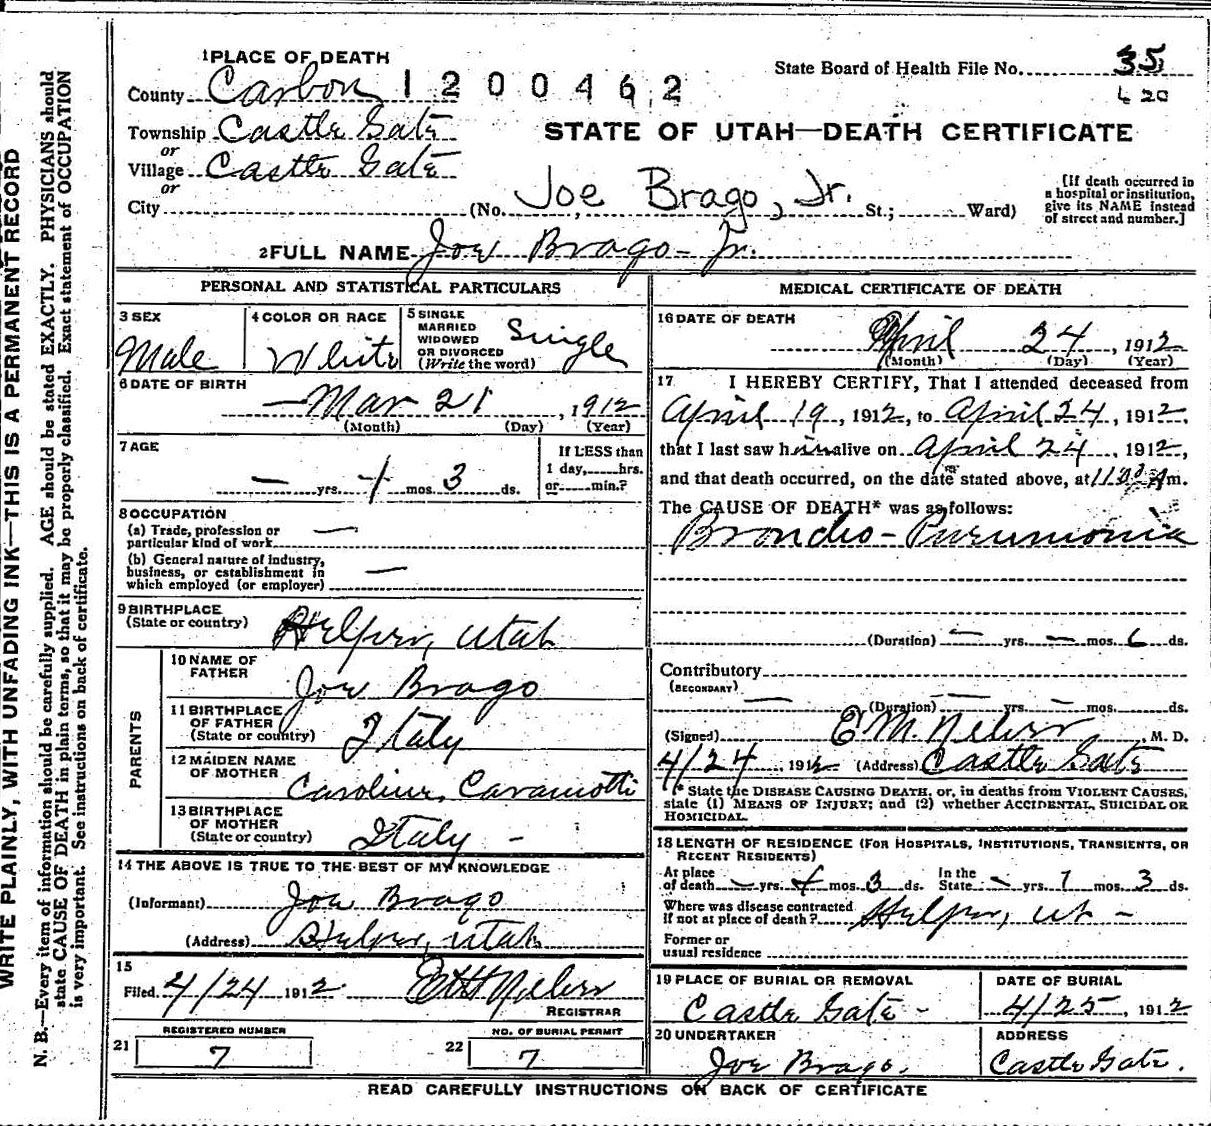 1 PLACE OF DEATH
State Board of Health File No. 35
County Carbon 1200462
420
Township Castle Gate
STATE OF UTAH—DEATH CERTIFICATE
or
Village Castle Gate
or
City (No. Joe Brago, Jr. St.; Ward)
[If death occurred in a hospital or institution, give its NAME instead of street and number.]
2 FULL NAME Joe Brago - Jr.
PERSONAL AND STATISTICAL PARTICULARS
3 SEX Male
4 COLOR OR RACE White
5 SINGLE MARRIED WIDOWED OR DIVORCED (Write the word) Single
6 DATE OF BIRTH
— Mar 21, 1912
(Month) (Day) (Year)
7 AGE
— yrs. 1 mos. 3 ds.
If LESS than 1 day, hrs. or min.?
8 OCCUPATION
(a) Trade, profession or particular kind of work —
(b) General nature of industry, business, or establishment in which employed (or employer) —
9 BIRTHPLACE (State or country) Helper, Utah
PARENTS
10 NAME OF FATHER Joe Brago
11 BIRTHPLACE OF FATHER (State or country) Italy
12 MAIDEN NAME OF MOTHER Caroline
13 BIRTHPLACE OF MOTHER (State or country) Italy -
14 THE ABOVE IS TRUE TO THE BEST OF MY KNOWLEDGE
(Informant) Joe Brago
(Address) Helper, Utah
15
Filed 4/24 1912
REGISTRAR
REGISTERED NUMBER
21 7
NO. OF BURIAL PERMIT
22 7
MEDICAL CERTIFICATE OF DEATH
16 DATE OF DEATH
April 24, 1912
(Month) (Day) (Year)
17 I HEREBY CERTIFY, That I attended deceased from
April 19, 1912, to April 24, 1912,
that I last saw him alive on April 24, 1912,
and that death occurred, on the date stated above, at m.
The CAUSE OF DEATH* was as follows:
Broncho-Pneumonia
(Duration) — yrs. — mos. 6 ds.
Contributory
(SECONDARY)
— (Duration) — yrs. — mos. ds.
(Signed) E M. , M. D.
4/24, 1912 (Address) Castle Gate
* State the DISEASE CAUSING DEATH, or, in deaths from VIOLENT CAUSES,
state (1) MEANS OF INJURY; and (2) whether ACCIDENTAL, SUICIDAL OR
HOMICIDAL.
18 LENGTH OF RESIDENCE (FOR HOSPITALS, INSTITUTIONS, TRANSIENTS, OR
RECENT RESIDENTS)
At place of death — yrs. 1 mos. 3 ds. In the State — yrs. 1 mos. 3 ds.
Where was disease contracted if not at place of death? Helper, Ut -
Former or usual residence
19 PLACE OF BURIAL OR REMOVAL Castle Gate -
DATE OF BURIAL 4/25, 1912
20 UNDERTAKER Joe Brago.
ADDRESS Castle Gate.
READ CAREFULLY INSTRUCTIONS ON BACK OF CERTIFICATE
WRITE PLAINLY, WITH UNFADING INK—THIS IS A PERMANENT RECORD
N. B.—Every item of information should be carefully supplied. AGE should be stated EXACTLY. PHYSICIANS should
state CAUSE OF DEATH in plain terms, so that it may be properly classified. Exact statement of OCCUPATION
is very important. See instructions on back of certificate.